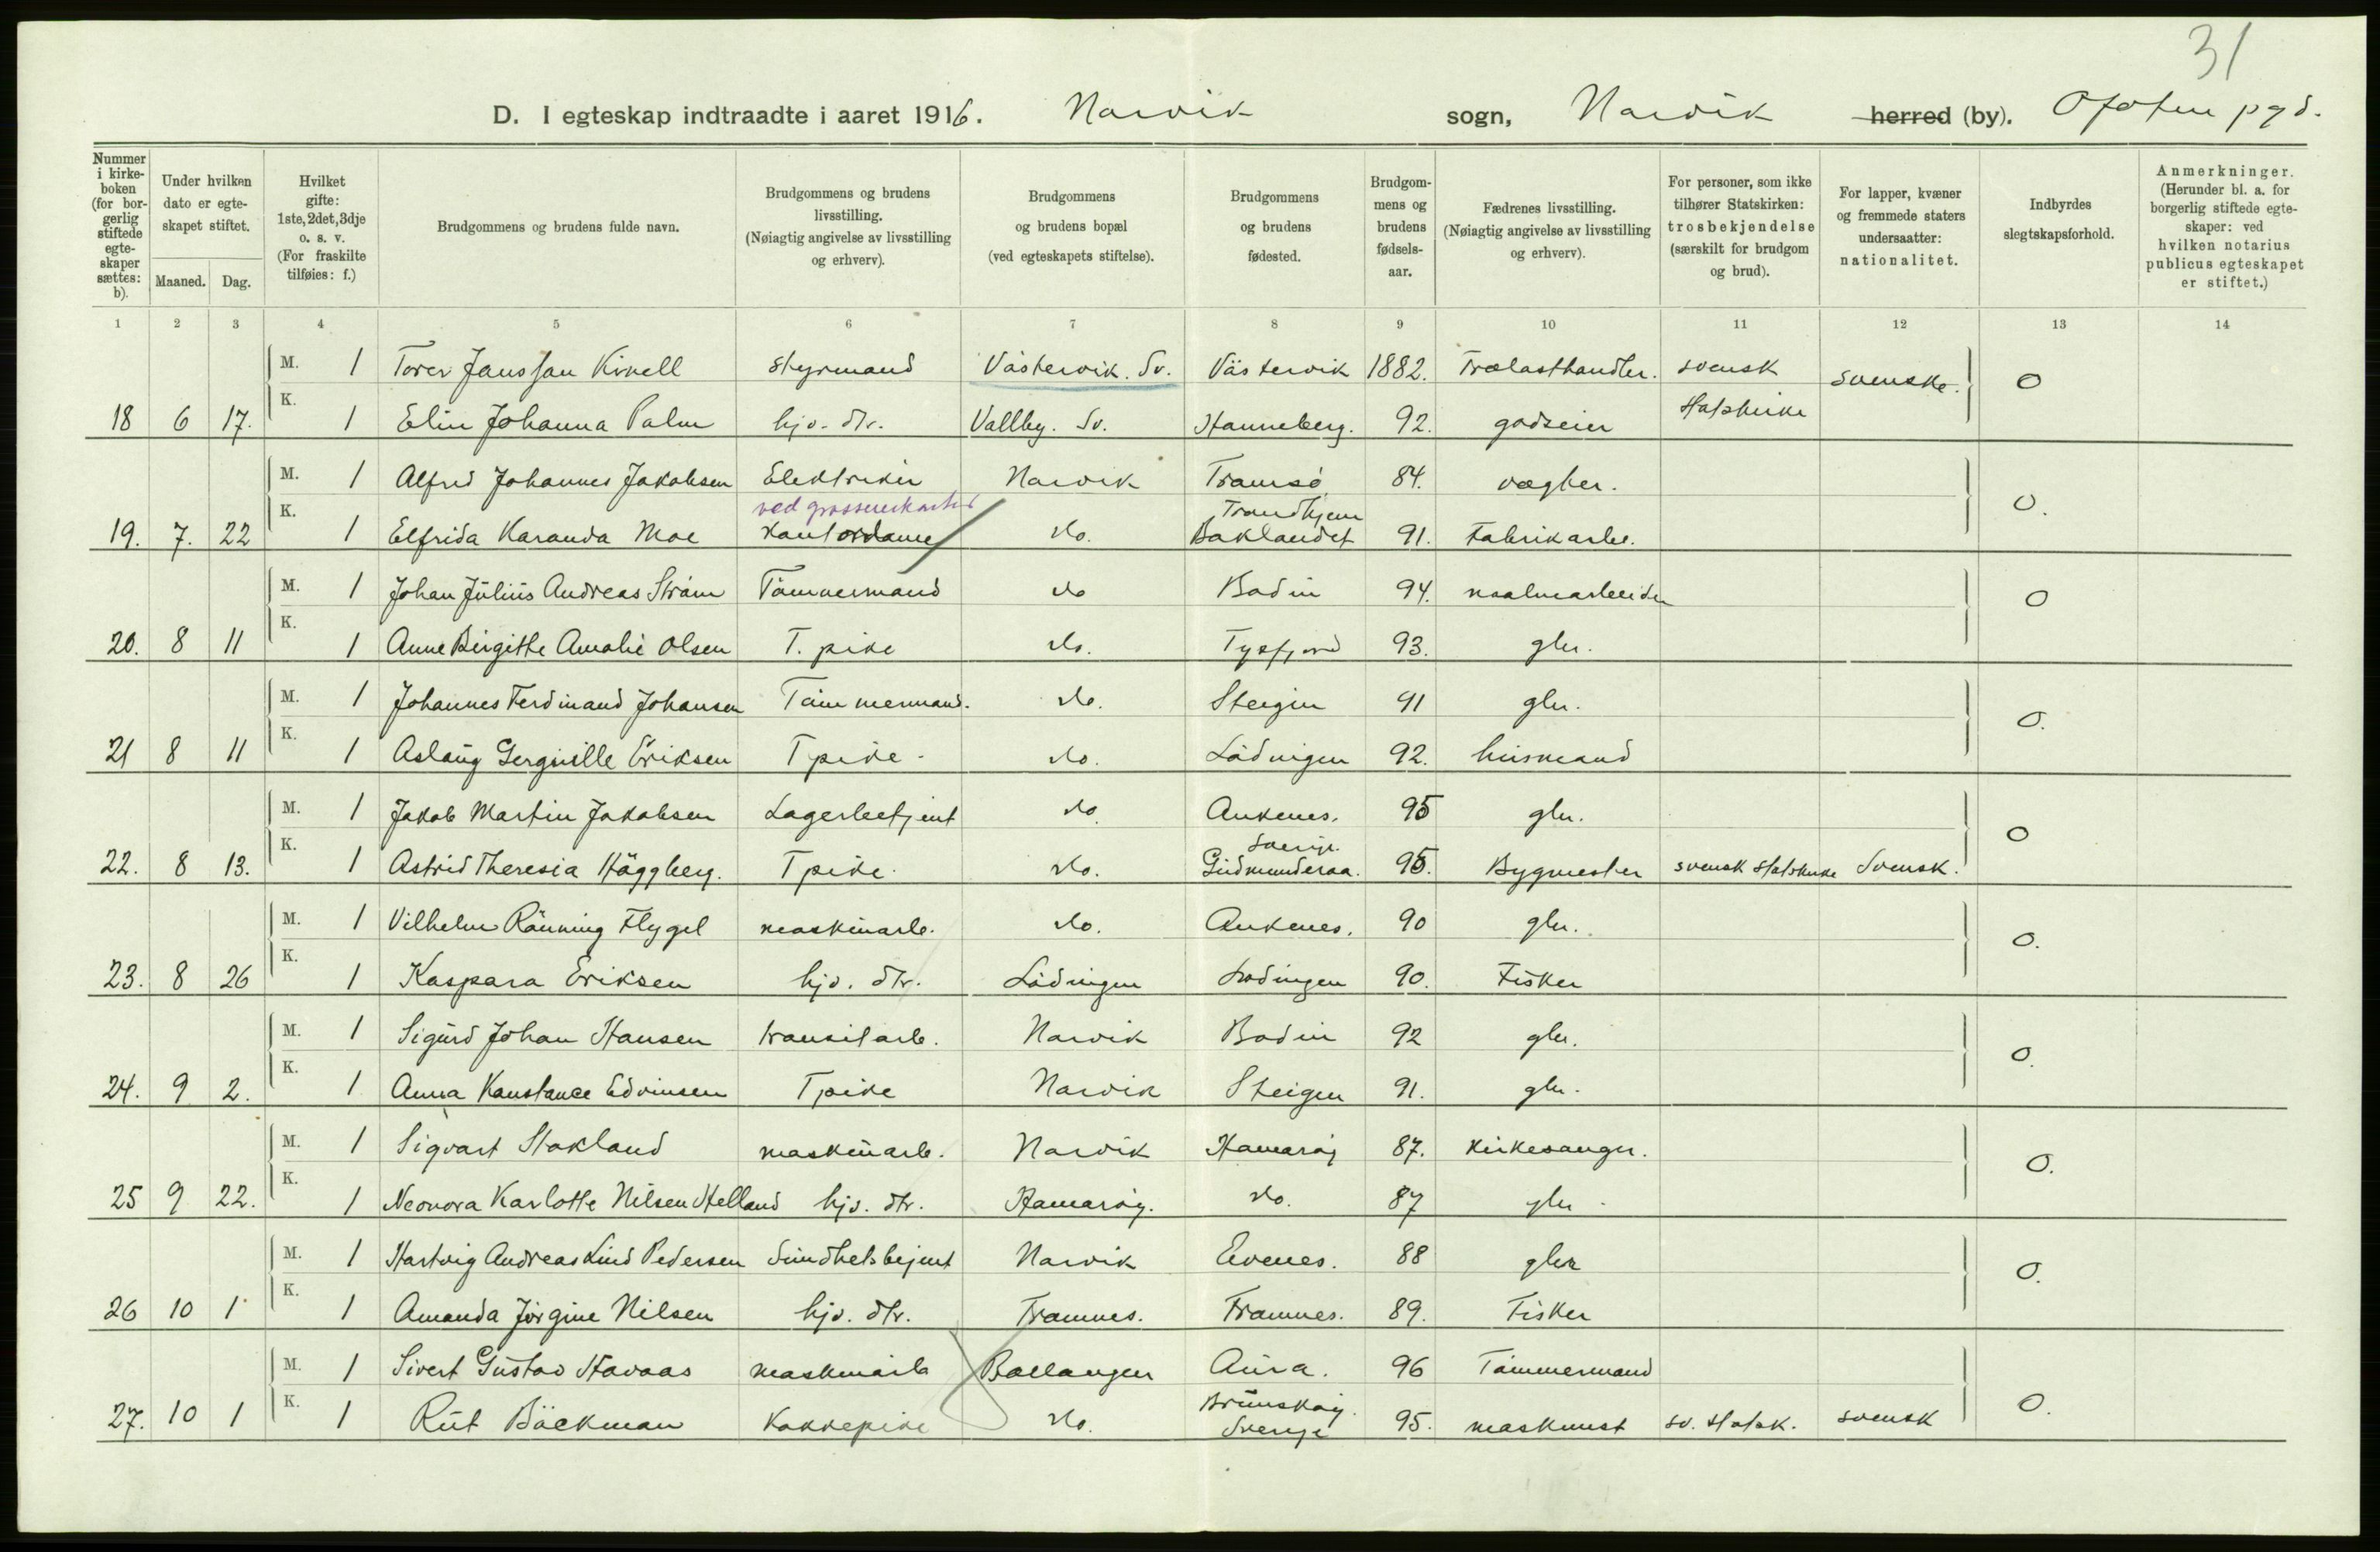 31
D. I egteskap indtraadte i aaret 1916. Narvik sogn, Narvik herred (by). Ofoten pgd.
Nummer i kirkeboken (for borgerlig stiftede egteskaper sættes: b).
Under hvilken dato er egteskapet stiftet.
Maaned. Dag.
Hvilket gifte: 1ste, 2det, 3dje o. s. v. (For fraskilte tilføies: f.)
Brudgommens og brudens fulde navn.
Brudgommens og brudens livsstilling. (Nøiagtig angivelse av livsstilling og erhverv).
Brudgommens og brudens bopæl (ved egteskapets stiftelse).
Brudgommens og brudens fødested.
Brudgommens og brudens fødselsaar.
Fædrenes livsstilling. (Nøiagtig angivelse av livsstilling og erhverv).
For personer, som ikke tilhører Statskirken: trosbekjendelse (særskilt for brudgom og brud).
For lapper, kvæner og fremmede staters undersaatter: nationalitet.
Indbyrdes slegtskapsforhold.
Anmerkninger. (Herunder bl. a. for borgerlig stiftede egteskaper: ved hvilken notarius publicus egteskapet er stiftet.)
1 2 3 4 5 6 7 8 9 10 11 12 13 14
M. 1 Jansson styrmand Västervik. Sv. Västervik 1882. Trælasthandler. svensk svenske. 0
18 6 17. K. 1 Elin Johanna Palm hjv. dtr. Vallby. Sv. Hanneberg. 92. godseier Statskirke
M. 1 Alfred Johannes Jakobsen Elektriker Narvik Tromsø 84. vægter. 0.
ved Trondhjem
19. 7. 22 K. 1 Elfrida Karanda Moe Kontordame do. Baklandet 91. Fabrikarbe.
M. 1 Johan Julius Andreas Strøm Tømmermand do Bodin 94. malmarbeider 0
20. 8 11 K. 1 Anne Birgitte Amalie Olsen T. pike do. Tysfjord 93. gbr.
M. 1 Johannes Ferdinand Johansen Tømmermand. do. Steigen 91 gbr. 0.
21 8 11 K. 1 Aslaug Eriksen T pike do. Lødingen 92. husmand
M. 1 Jakob Martin Jakobsen Lagerbetjent do. Ankenes. 95 gbr. 0
Sverige.
22. 8 13. K. 1 Astrid Theresia Häggberg. T pike. do. Gudmunderaa. 95. Bygmester svensk Statskirke Svensk.
M. 1 Vilhelm Rønning Flygel maskinarb. do. Ankenes. 90 gbr. 0.
23. 8 26 K. 1 Kaspara Eriksen hjv. dtr. Lødingen Lødingen 90. Fisker
M. 1 Sigurd Johan Hansen transitarb. Narvik Bodin 92 gbr. 0.
24. 9 2. K. 1 Anna Konstance Edvinsen T pike Narvik Steigen 91. gbr.
M. 1 Sigvart Stokland maskinarb. Narvik Hamarøy 87. kirkesanger. 0.
25 9 22. K. 1 Neonora Karlotte Nilsen Helland hjv. dtr. Hamarøy. do. 87 gbr
M. 1 Hartvig Andreas Lind Pedersen Sundhetsbejent Narvik Evenes. 88 gbr 0.
26 10 1 K. 1 Amanda Jørgine Nilsen hjv. dtr. Tramnes. Tramnes. 89. Fisker
M. 1 Sivert Gustav Havaas maskinarb Ballangen Aura. 96 Tømmermand 0.
Brunskog.
27. 10 1 K. 1 Rut Bäckman Kokkepike do. Sverige 95. maskinist sv. statsk. svensk